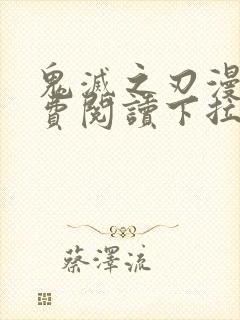 鬼滅之刃漫
費閱讀下拉
蔡澤流